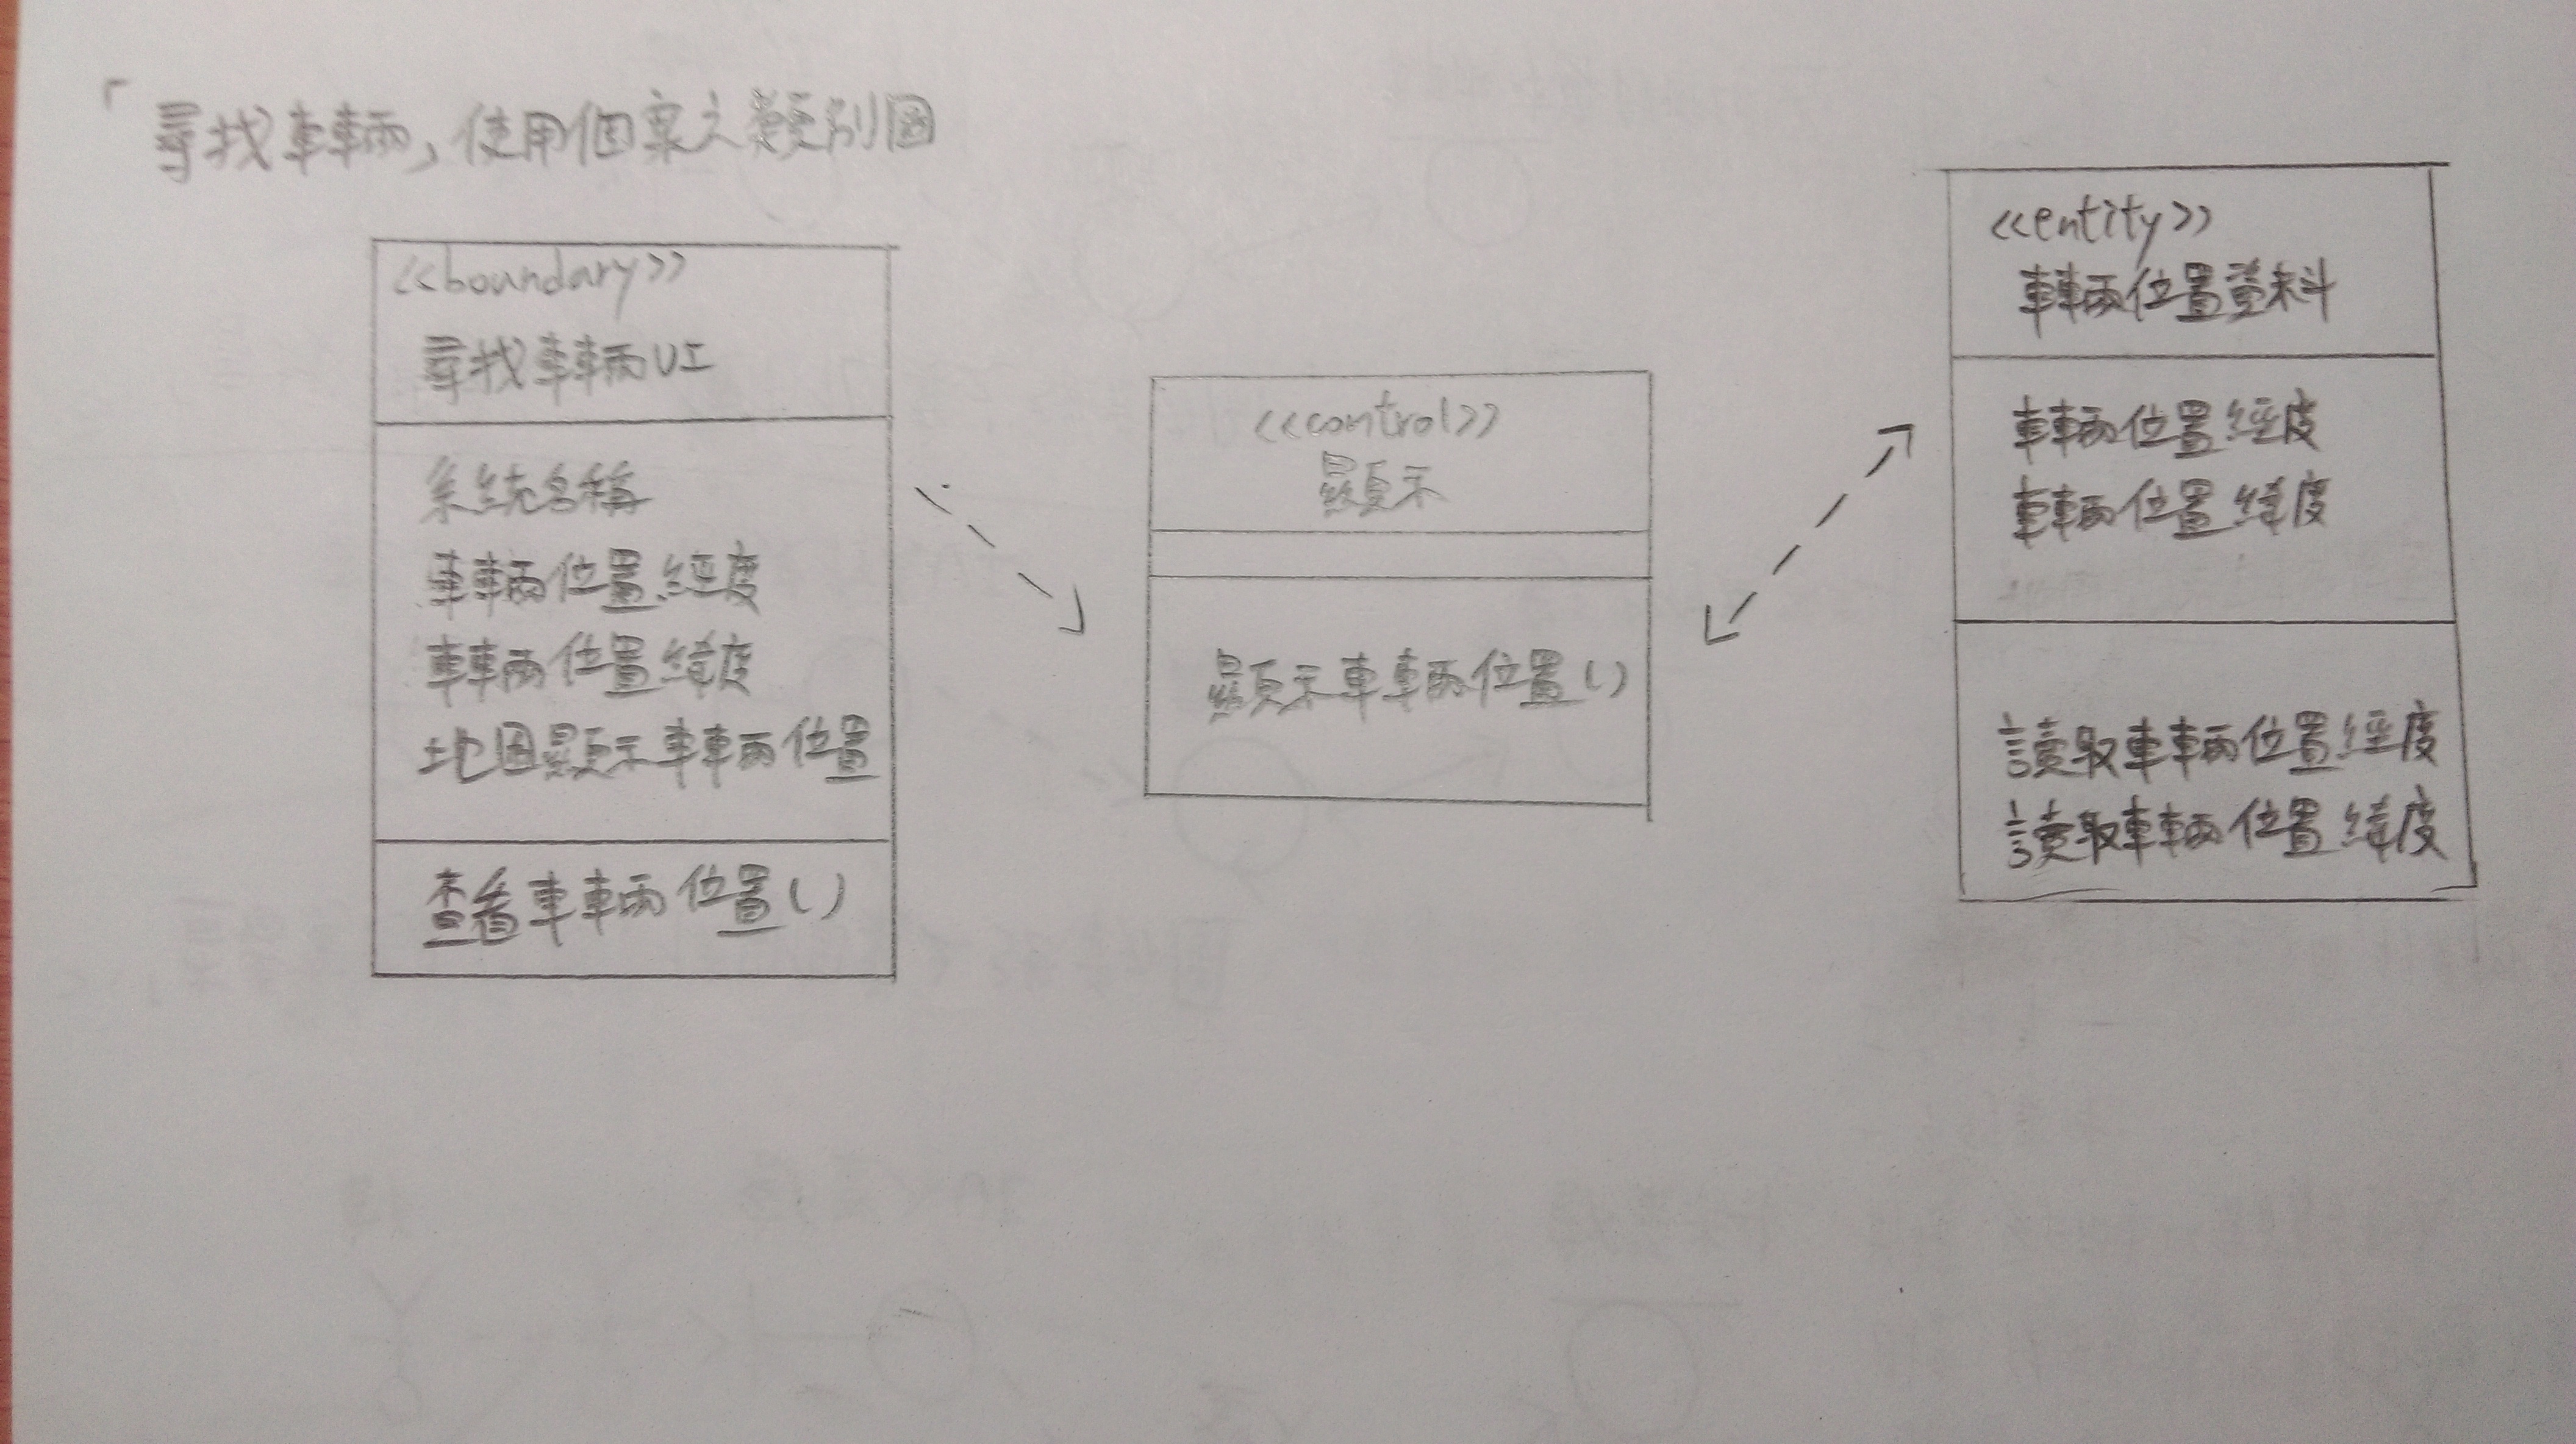 「尋找車輛」使用個案之類別圖
<<boundary>>
尋找車輛UI
系統名稱
車輛位置經度
車輛位置緯度
地圖顯示車輛位置
查看車輛位置()
<<control>>
顯示
顯示車輛位置()
<<entity>>
車輛位置資料
車輛位置經度
車輛位置緯度
讀取車輛位置經度
讀取車輛位置緯度